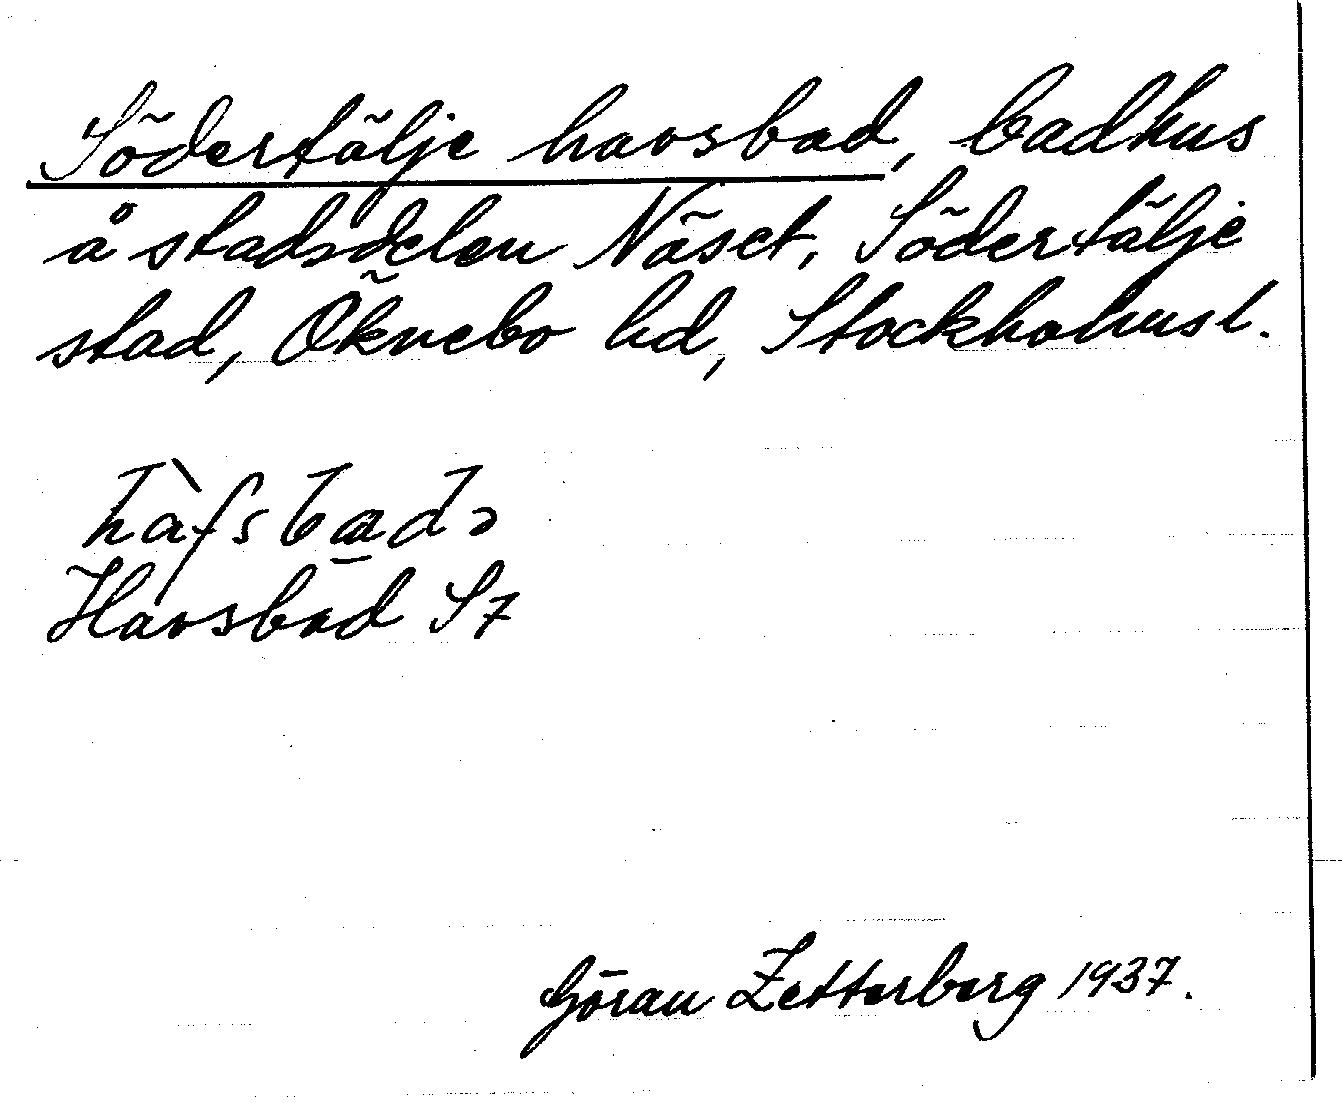 Södertälje havsbad, badhus
å stadsdelen Näset, Södertälje
stad, Öknebo hd, Stockholmsl.
hàfsbadɔ
Havsbad S7
Göran Zetterberg 1937.